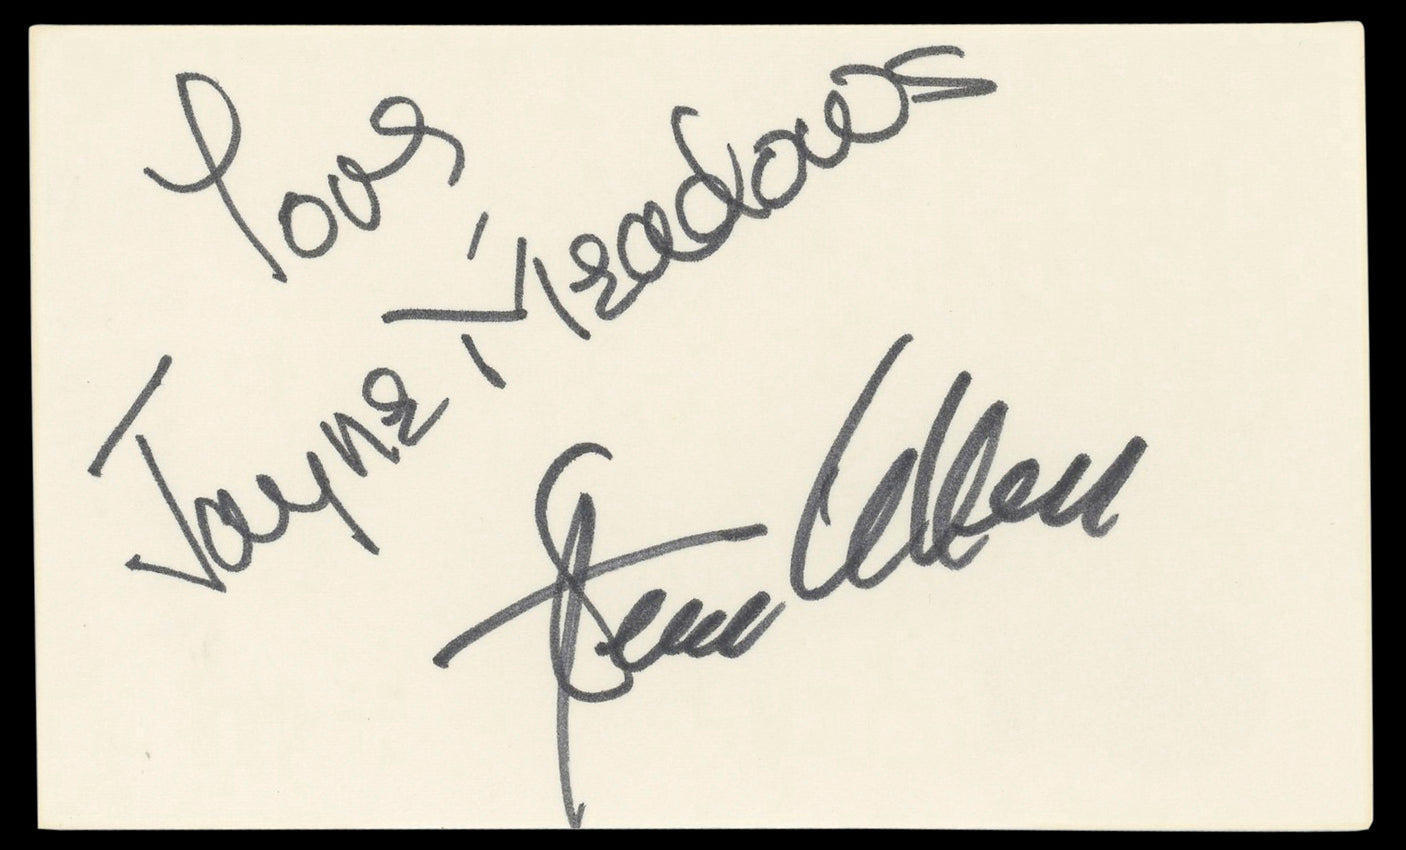 Love,
Jayne Meadows
Steve Allen